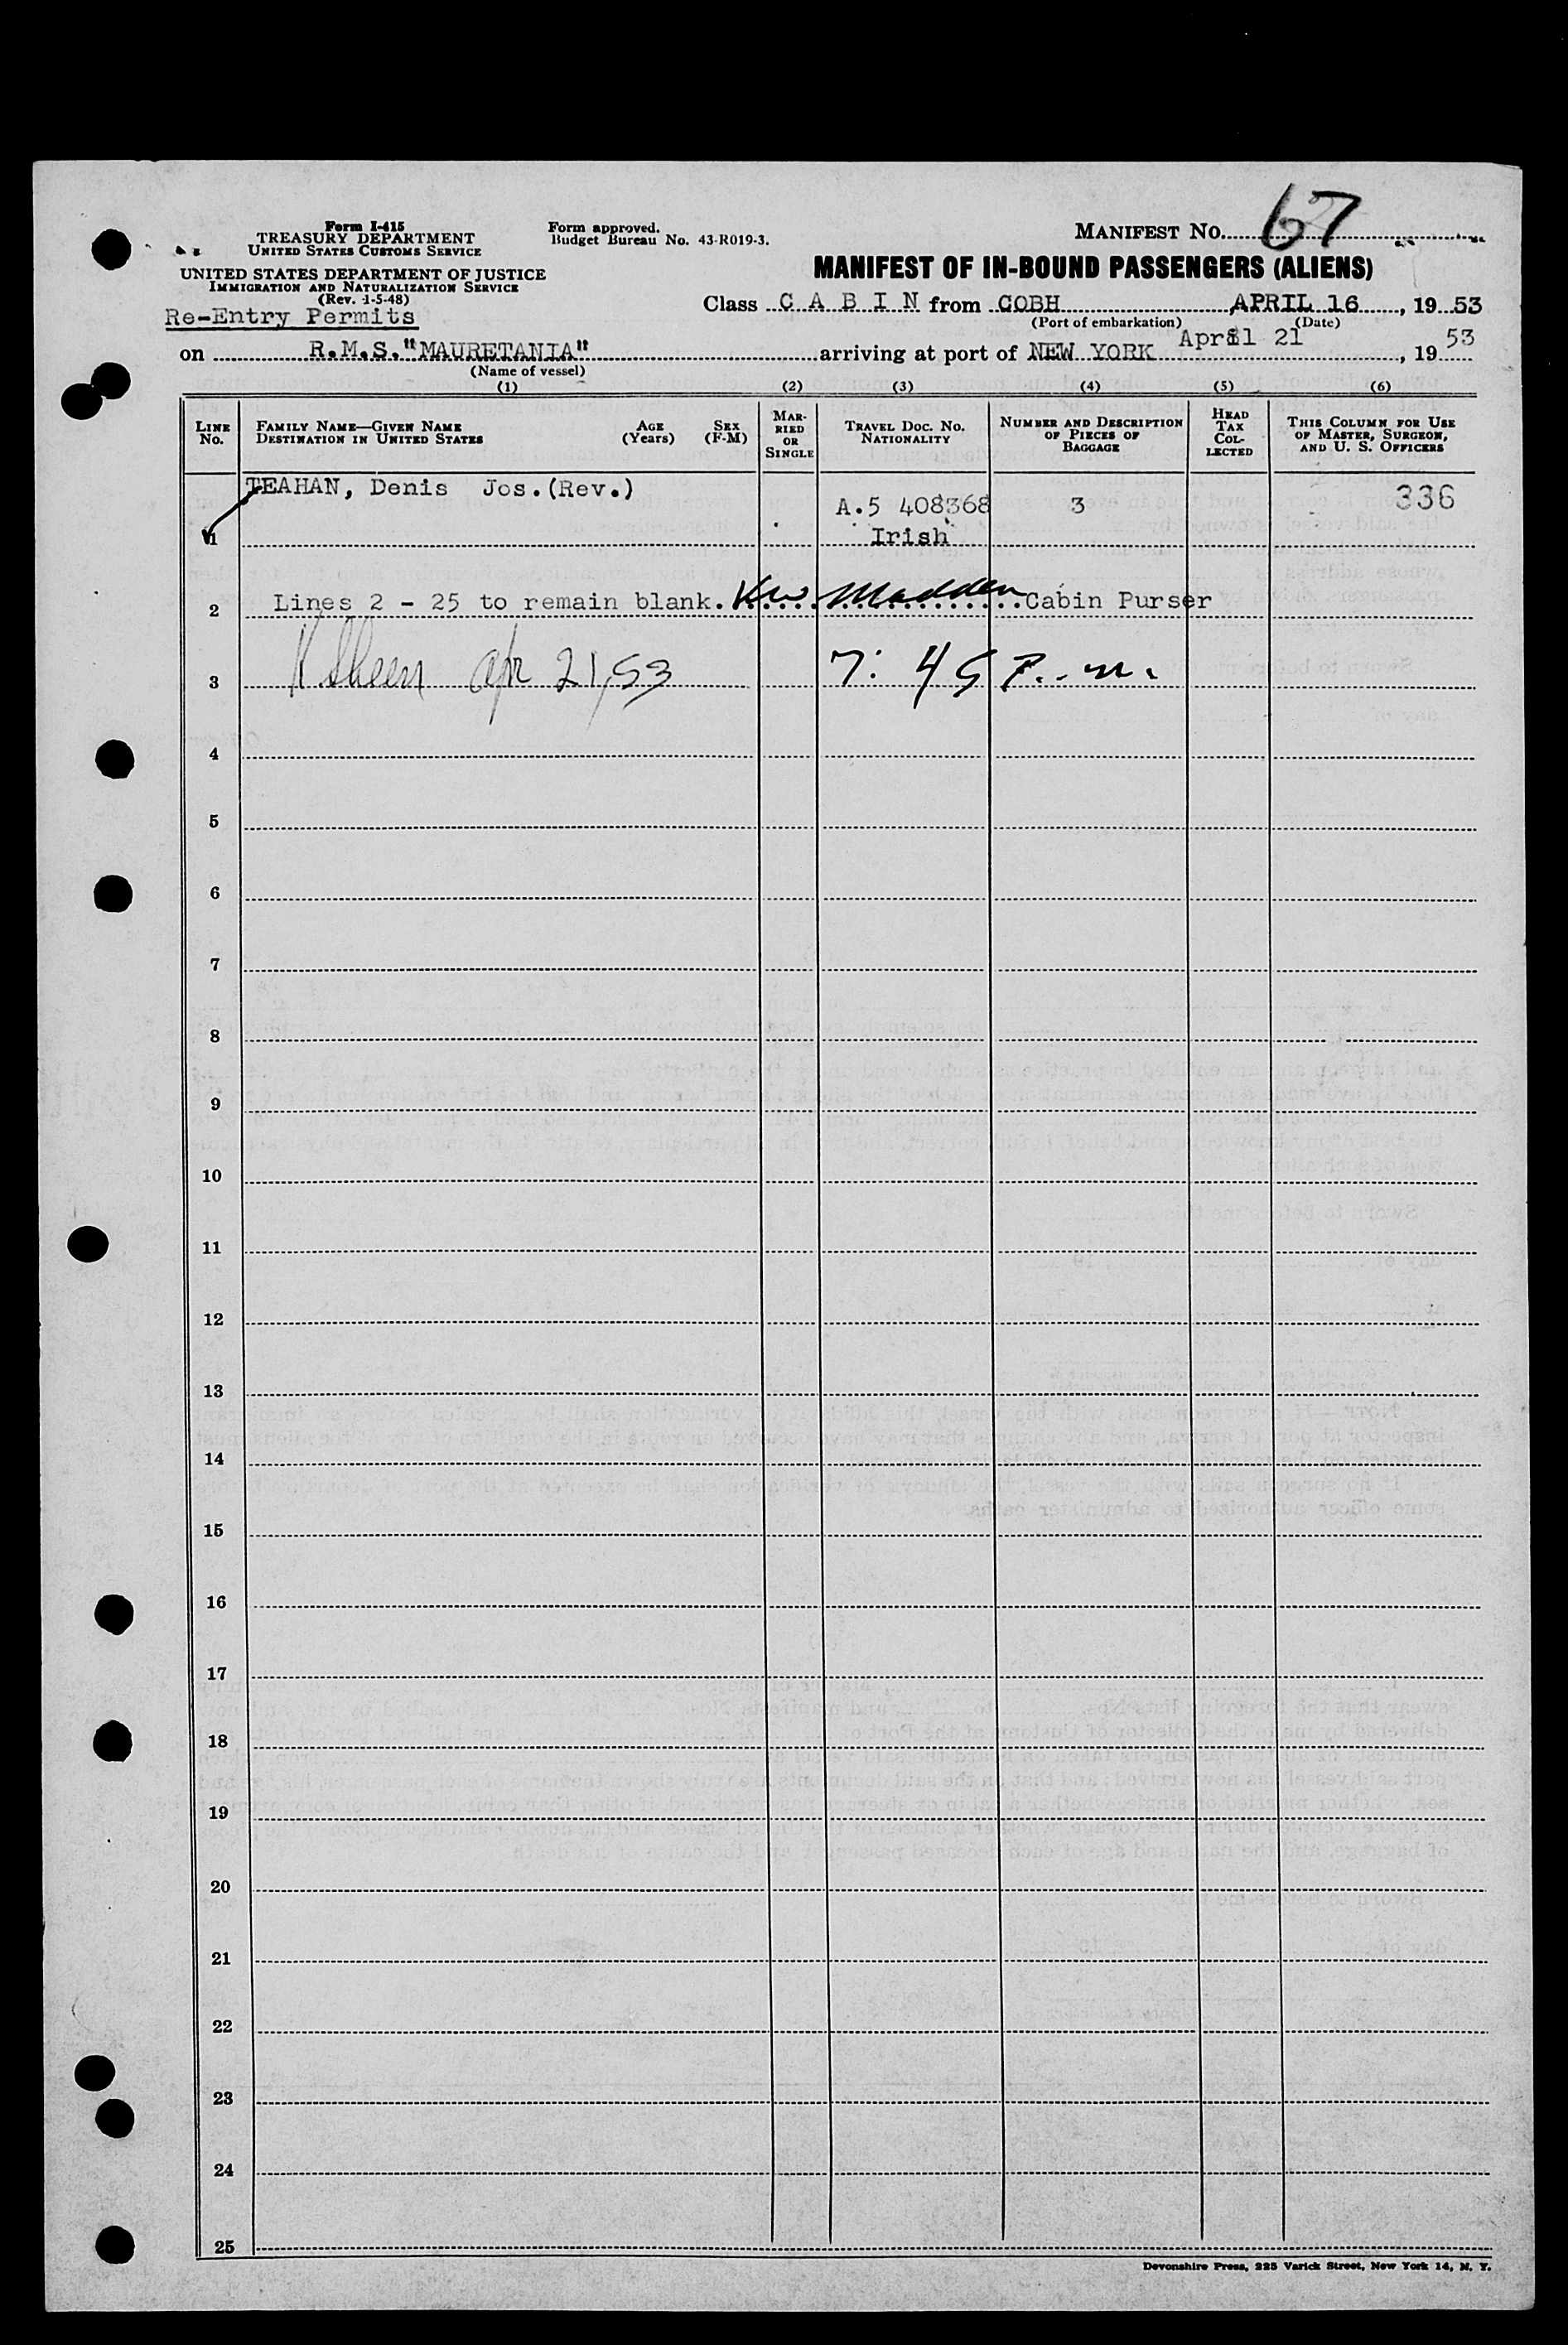 Form I-415
TREASURY DEPARTMENT
UNITED STATES CUSTOMS SERVICE
UNITED STATES DEPARTMENT OF JUSTICE
IMMIGRATION AND NATURALIZATION SERVICE
(Rev. 1-5-48)
Re-Entry Permits
Form approved.
Budget Bureau No. 43-R019-3.
MANIFEST NO. 67
MANIFEST OF IN-BOUND PASSENGERS (ALIENS)
Class C A B I N from COBH, APRIL 16, 19 53
(Port of embarkation) (Date)
on R.M.S."MAURETANIA" arriving at port of NEW YORK April 21, 19 53
(Name of vessel)
(1) (2) (3) (4) (5) (6)
LINE NO.
FAMILY NAME—GIVEN NAME
DESTINATION IN UNITED STATES
AGE (Years)
SEX (F-M)
MARRIED OR SINGLE
TRAVEL DOC. NO.
NATIONALITY
NUMBER AND DESCRIPTION OF PIECES OF BAGGAGE
HEAD TAX COLLECTED
THIS COLUMN FOR USE OF MASTER, SURGEON, AND U. S. OFFICERS
TEAHAN, Denis Jos.(Rev.)
A.5 408368 3 336
1 Irish
2 Lines 2 - 25 to remain blank. KW Madden Cabin Purser
3 Apr 21, 53 7:45 P.m.
4
5
6
7
8
9
10
11
12
13
14
15
16
17
18
19
20
21
22
23
24
25
Devonshire Press, 225 Varick Street, New York 14, N. Y.